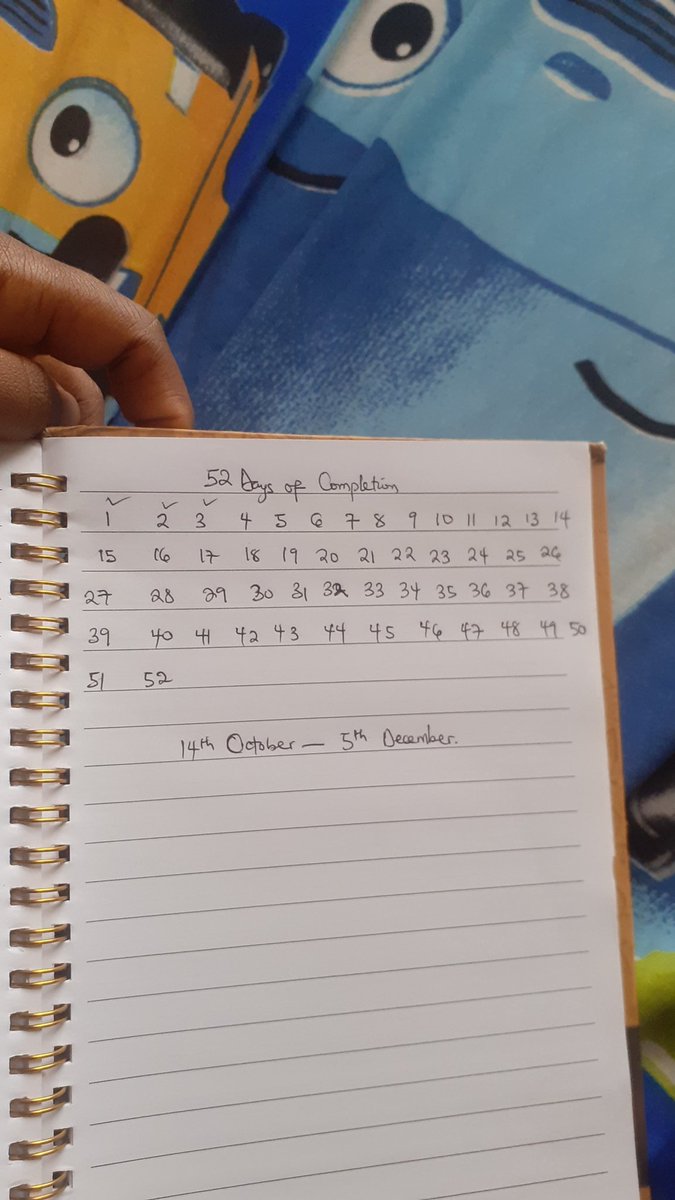 52 Days of Completion
1 2 3 4 5 6 7 8 9 10 11 12 13 14
15 16 17 18 19 20 21 22 23 24 25 26
27 28 29 30 31 32 33 34 35 36 37 38
39 40 41 42 43 44 45 46 47 48 49 50
51 52
14th October — 5th December.